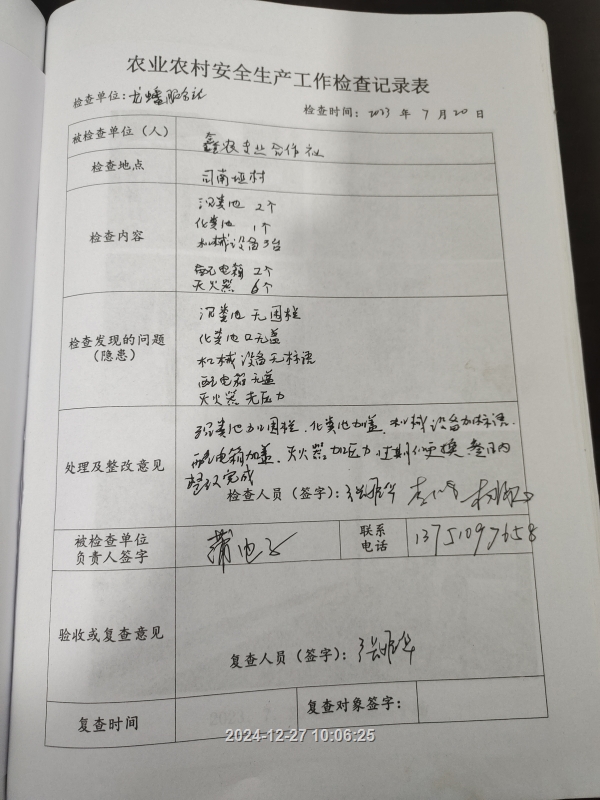 农业农村安全生产工作检查记录表
检查单位: 龙蟠服务社
检查时间: 2023 年 7 月 20 日
被检查单位(人) 鑫农专业合作社
检查地点 司南垭村
检查内容
沉粪池 2个
化粪池 1个
机械设备3台
配电箱 2个
灭火器 6个
检查发现的问题
(隐患)
沉粪池 无围栏
化粪池口无盖
机械设备无标语
配电箱无盖
灭火器 无压力
处理及整改意见
沉粪池加围栏、化粪池加盖、机械设备加标语、
配电箱加盖、灭火器加压力 过期的更换 叁日内
整改完成
检查人员(签字):
被检查单位
负责人签字
联系
电话
13751097658
验收或复查意见
复查人员(签字):
复查时间
复查对象签字:
2024-12-27 10:06:25